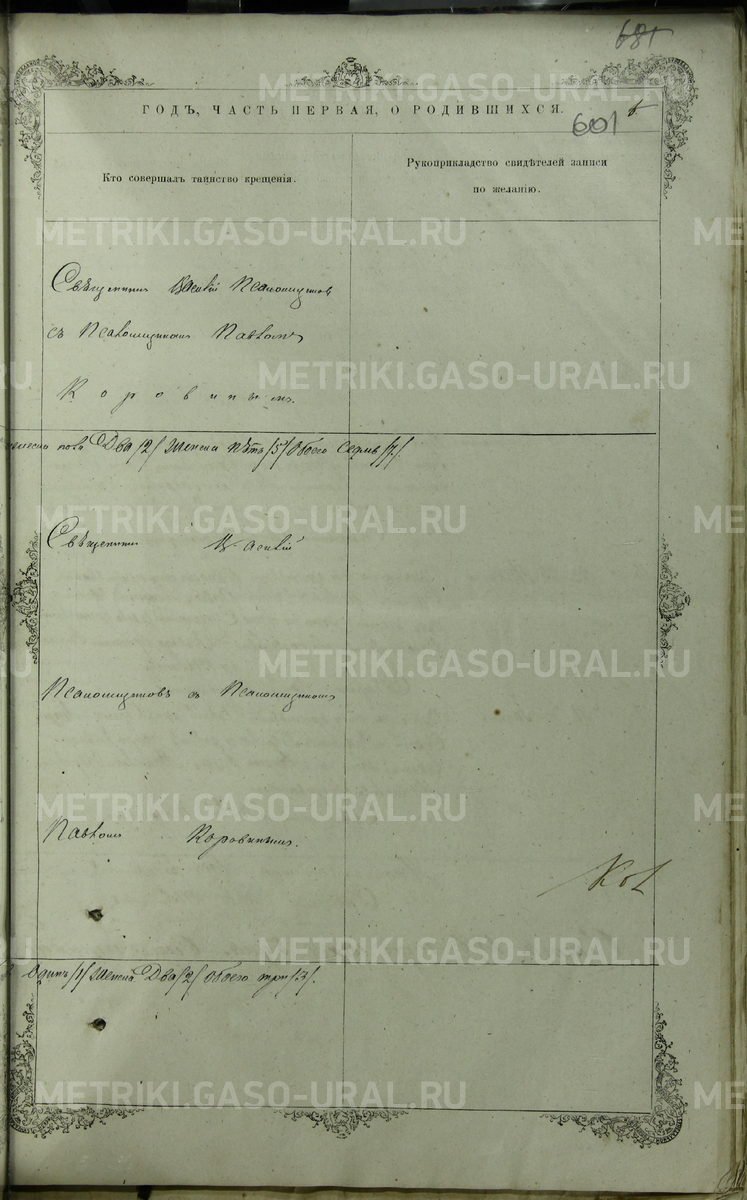 681
ГОДЪ, ЧАСТЬ ПЕРВАЯ, О РОДИВШИХСЯ.
601
Кто совершалъ таинство крещенія.
Рукоприкладство свидѣтелей записи
по желанію.
Священникъ Василій Псаломщиковъ
съ Псаломщикомъ Павломъ
Коровинымъ.
пола Два /2/ Женска Пѣть /5/ Обоего Семь /7/.
Священникъ Василій
Псаломщиковъ съ Псаломщикомъ
Павломъ Коровинымъ.
Одинъ /1/ Женска Два /2/ Обоего три /3/.
METRIKI.GASO-URAL.RU